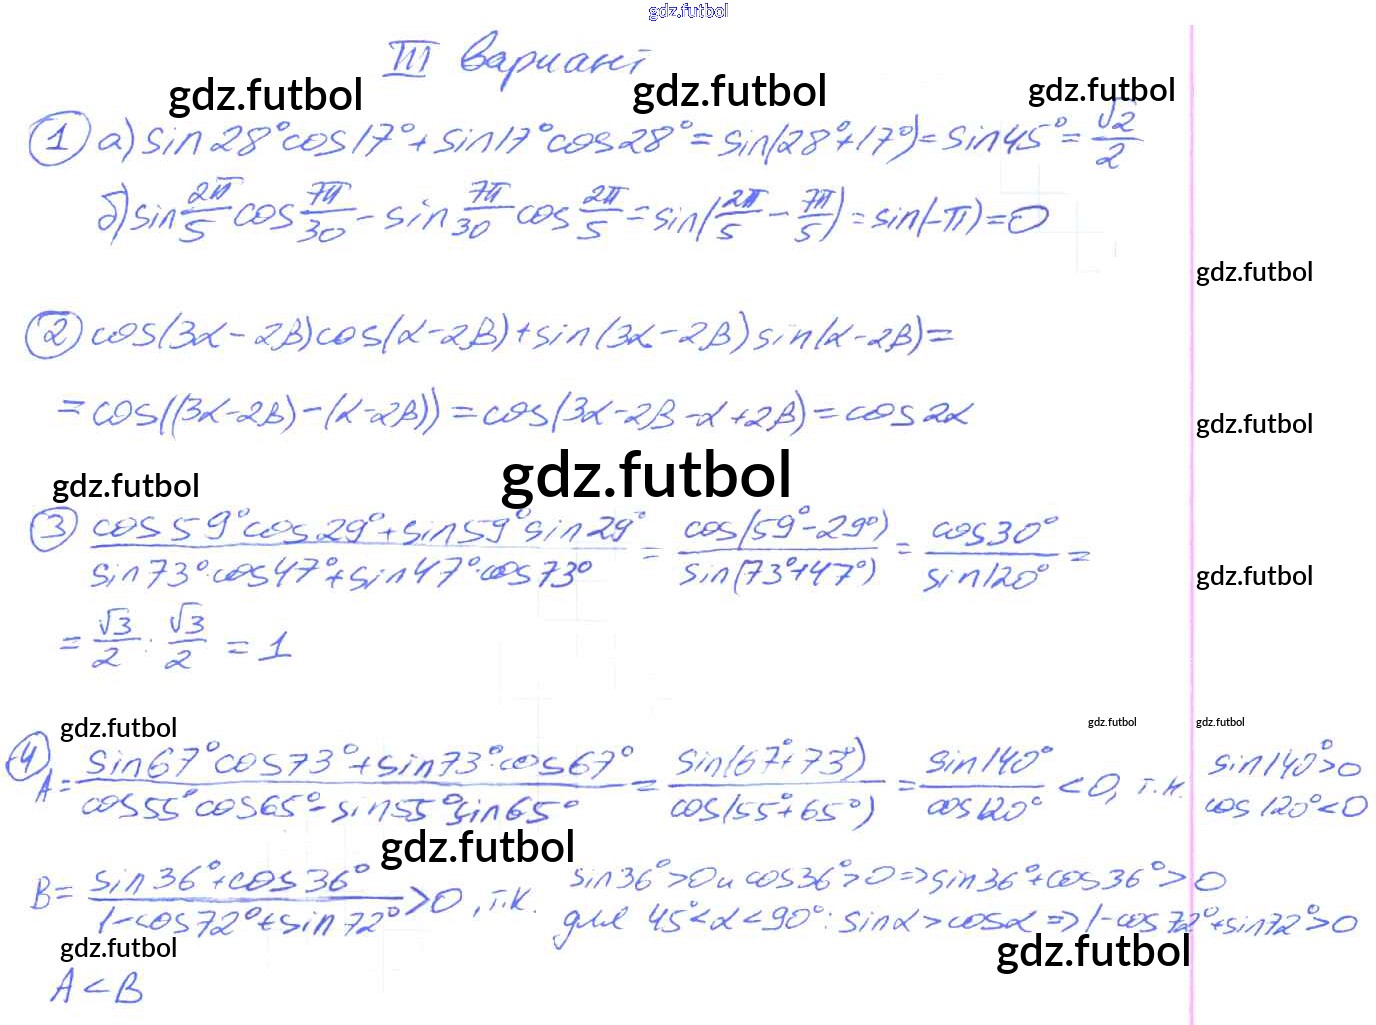 gdz.futbol
III вариант
gdz.futbol gdz.futbol gdz.futbol
① а) sin 28° cos 17° + sin 17° cos 28° = sin(28° + 17°) = sin 45° = √2/2
б) sin 2π/5 cos 7π/30 − sin 7π/30 cos 2π/5 = sin(2π/5 − 7π/5) = sin(−π) = 0
gdz.futbol
② cos(3α − 2β)cos(α − 2β) + sin(3α − 2β) sin(α − 2β) =
= cos((3α − 2β) − (α − 2β)) = cos(3α − 2β − α + 2β) = cos 2α
gdz.futbol
gdz.futbol gdz.futbol
③ (cos 59° cos 29° + sin 59° sin 29°)/(sin 73° · cos 47° + sin 47° · cos 73°) = cos(59° − 29°)/sin(73° + 47°) = cos 30°/sin 120° =
gdz.futbol
= √3/2 : √3/2 = 1
gdz.futbol gdz.futbol gdz.futbol
④ A = (sin 67° cos 73° + sin 73° · cos 67°)/(cos 55° cos 65° − sin 55° sin 65°) = sin(67° + 73°)/cos(55° + 65°) = sin 140°/cos 120° < 0, т.к. sin 140° > 0
cos 120° < 0
gdz.futbol
B = (sin 36° + cos 36°)/(1 − cos 72° + sin 72°) > 0, т.к. sin 36° > 0 и cos 36° > 0 ⇒ sin 36° + cos 36° > 0
для 45° < α < 90°: sin α > cos α ⇒ 1 − cos 72° + sin 72° > 0
gdz.futbol gdz.futbol
A < B